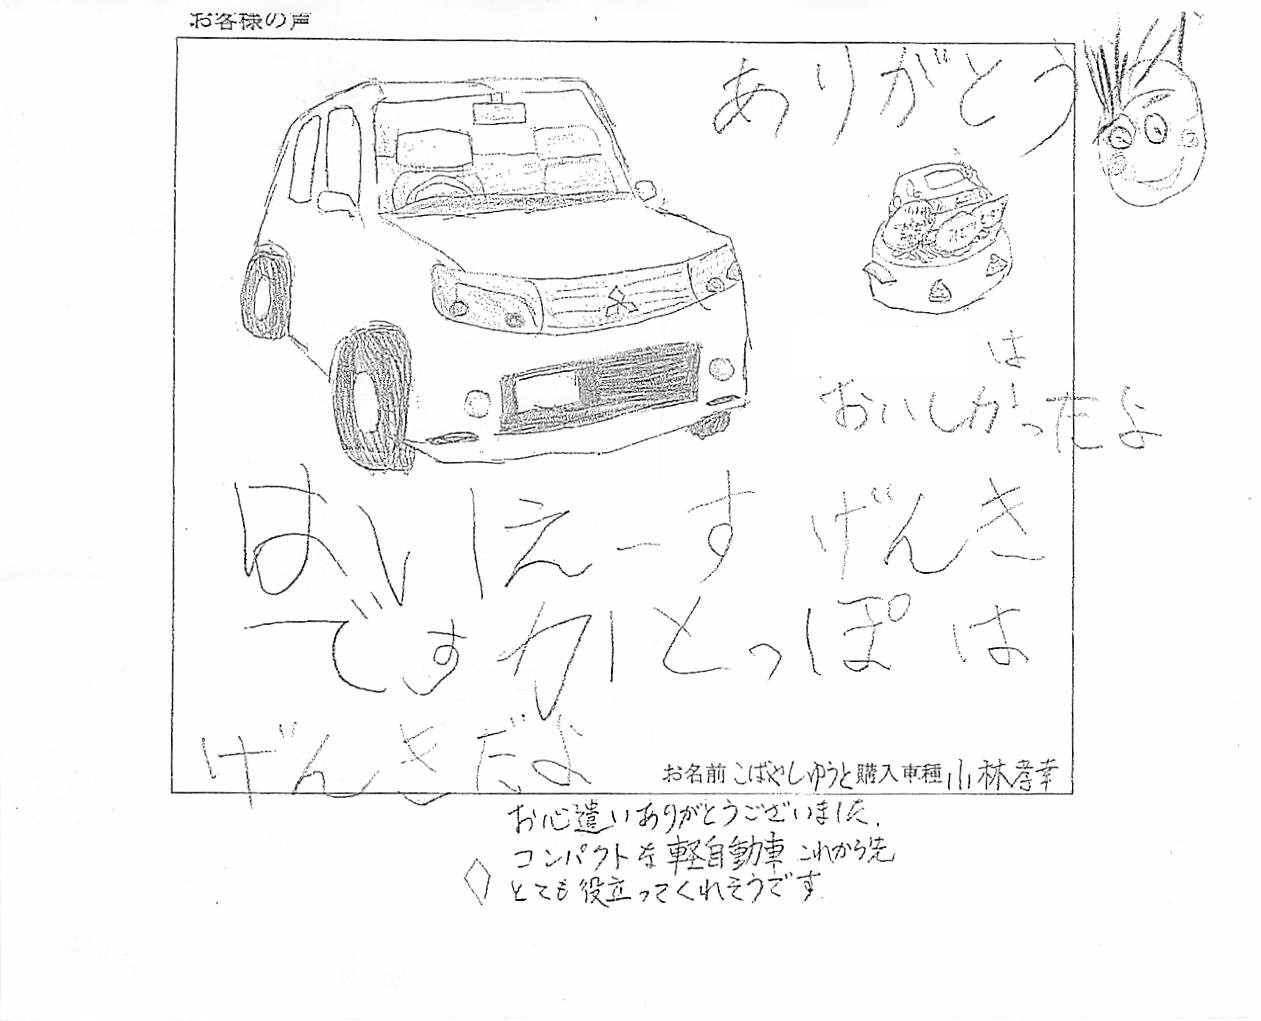 お客様の声
ありがとう
は
おいしかったよ
はいえーす げんき
ですか とっぽ は
げんきだよ
お名前 こばやしゆうと 購入車種 小林孝幸
お心遣いありがとうございました.
コンパクトな軽自動車 これから先
とても役立ってくれそうです.